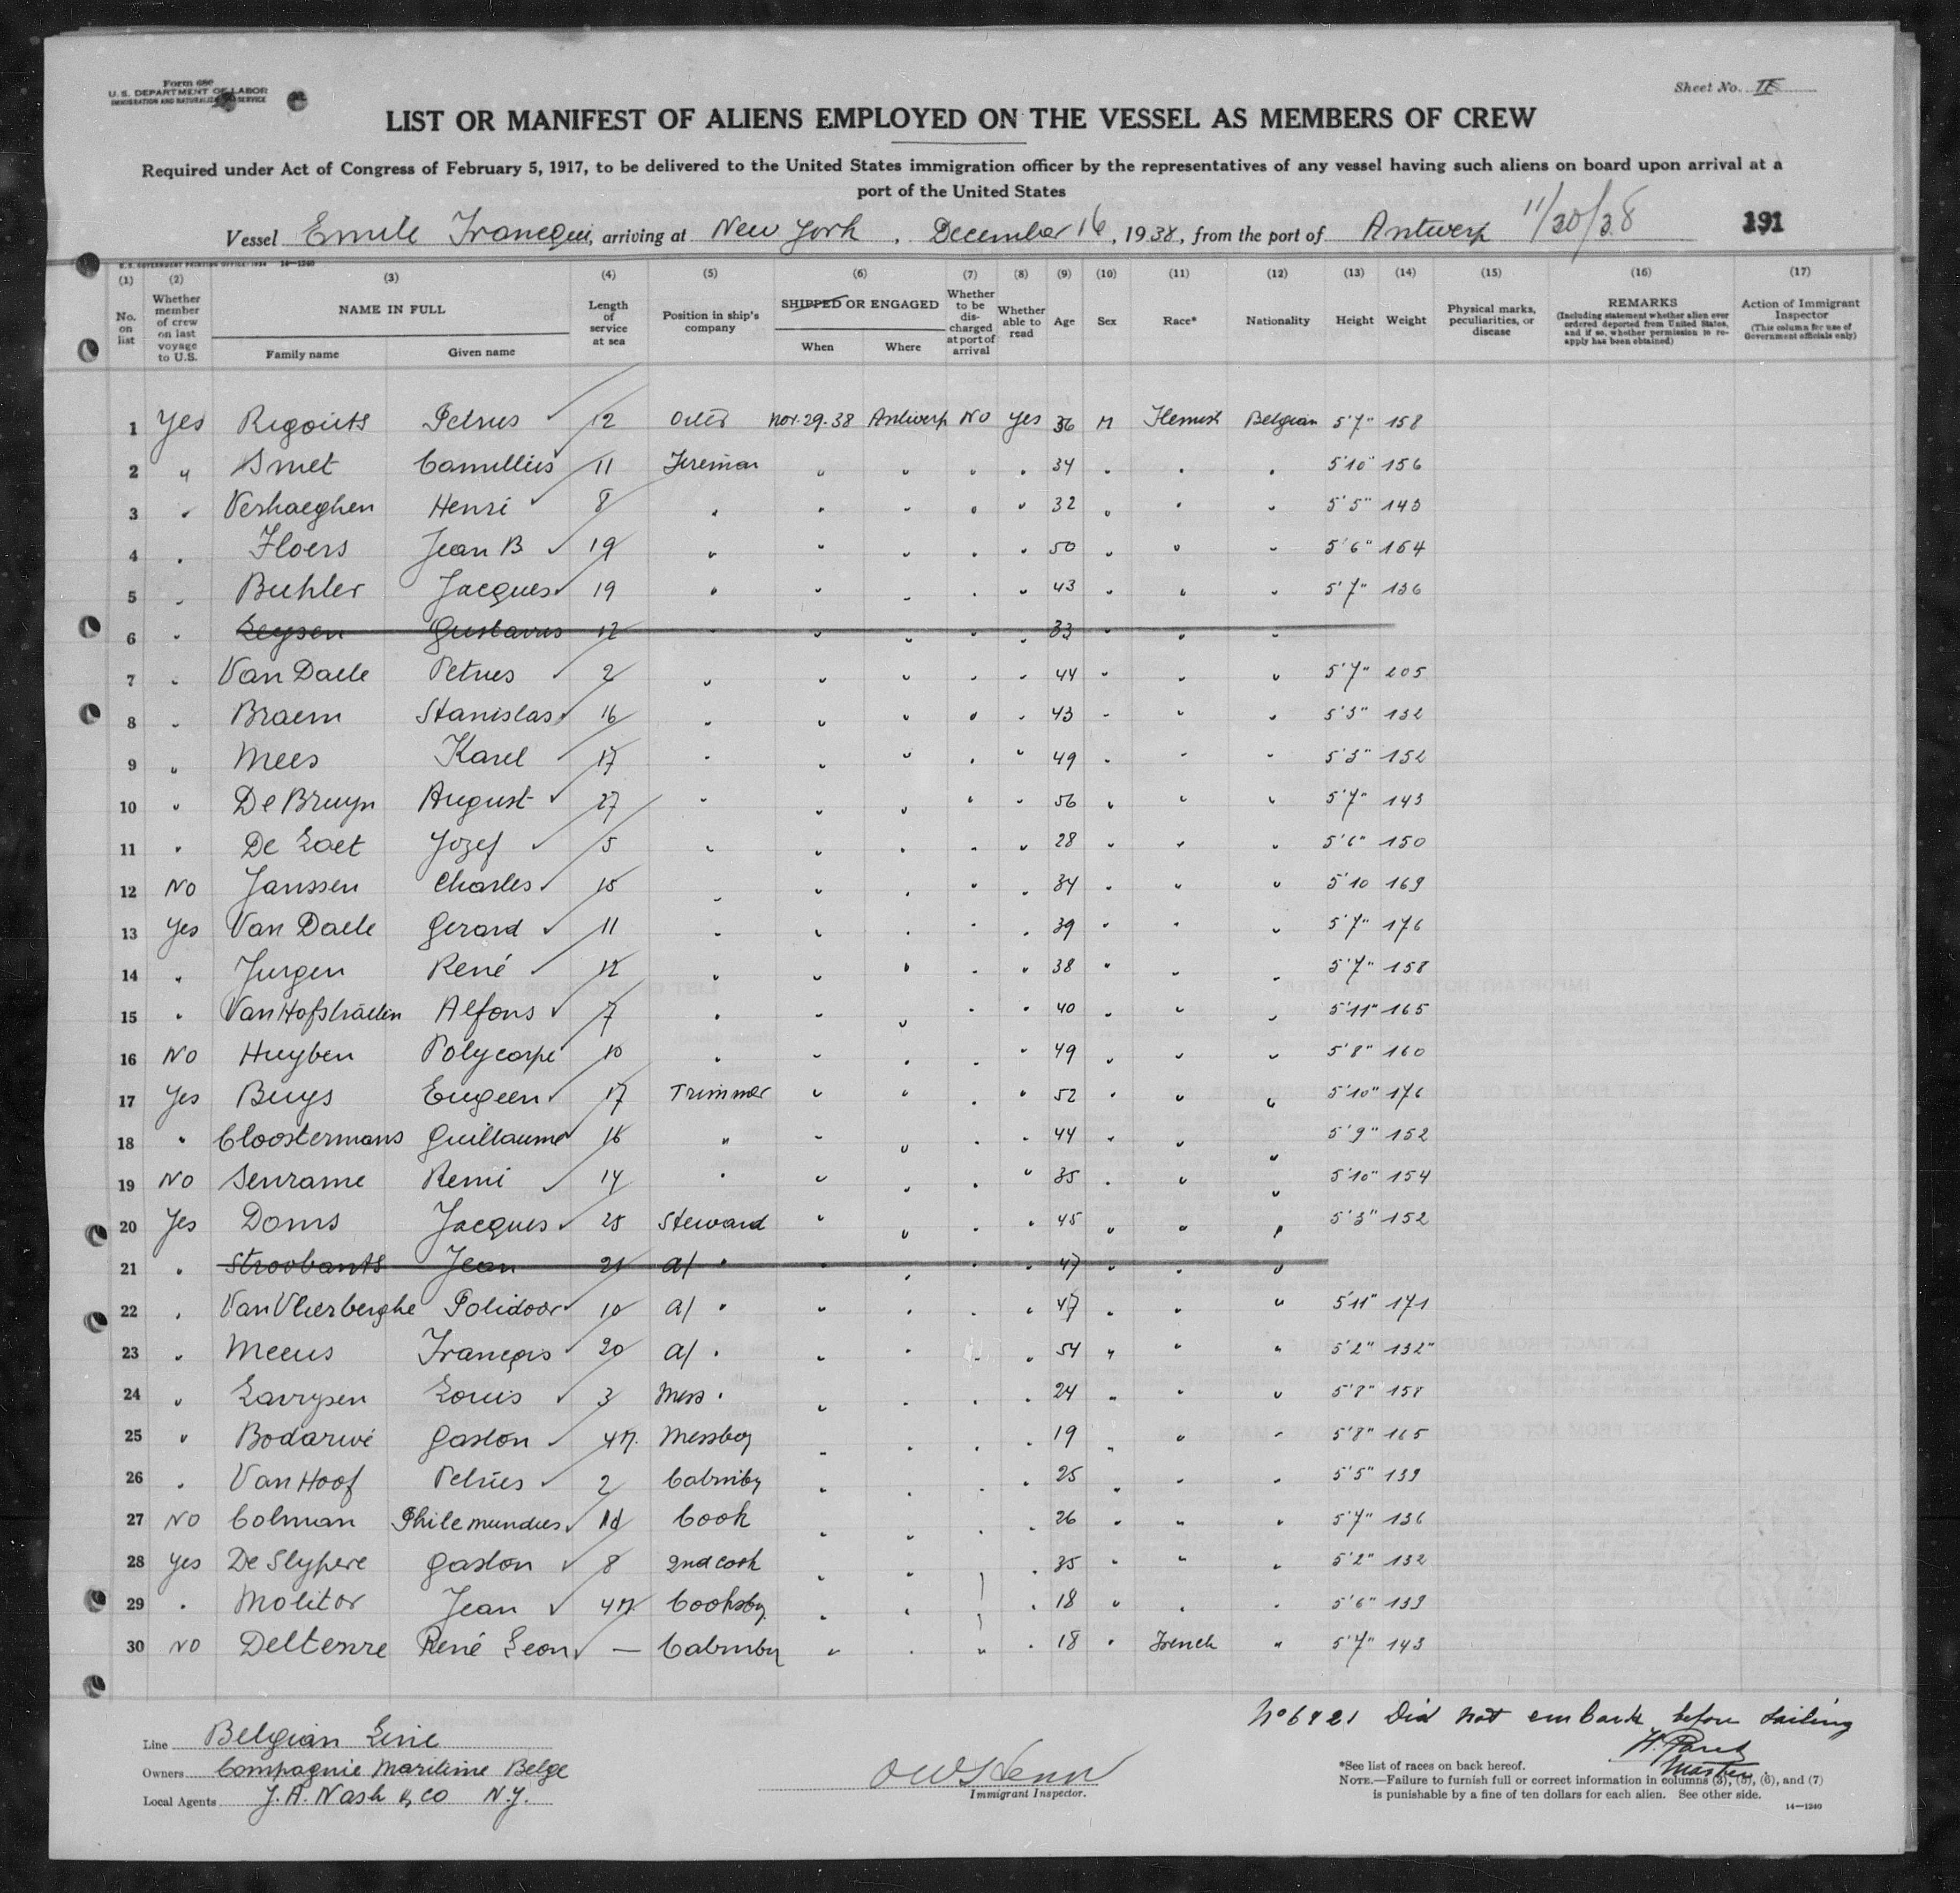 Form 680
U. S. DEPARTMENT OF LABOR
IMMIGRATION AND NATURALIZATION SERVICE
Sheet No. II
LIST OR MANIFEST OF ALIENS EMPLOYED ON THE VESSEL AS MEMBERS OF CREW
Required under Act of Congress of February 5, 1917, to be delivered to the United States immigration officer by the representatives of any vessel having such aliens on board upon arrival at a
port of the United States
Vessel Emile Francqui, arriving at New York, December 16, 1938, from the port of Antwerp 11/30/38 191
U. S. GOVERNMENT PRINTING OFFICE: 1934 14—1240
(1) No. on list
(2) Whether member of crew on last voyage to U.S.
(3) NAME IN FULL Family name Given name
(4) Length of service at sea
(5) Position in ship's company
(6) SHIPPED OR ENGAGED When Where
(7) Whether to be discharged at port of arrival
(8) Whether able to read
(9) Age
(10) Sex
(11) Race*
(12) Nationality
(13) Height
(14) Weight
(15) Physical marks, peculiarities, or disease
(16) REMARKS (Including statement whether alien ever ordered deported from United States, and if so, whether permission to reapply has been obtained)
(17) Action of Immigrant Inspector (This column for use of Government officials only)
1 Yes Rigouts Petrus 12 Oiler Nov. 29. 38 Antwerp No Yes 36 M Flemish Belgian 5'7" 158
2 " Smet Camillius 11 Fireman " " " " 34 " " " 5'10" 156
3 " Verhaeghen Henri 8 " " " " " 32 " " " 5'5" 143
4 " Floers Jean B 19 " " " " " 50 " " " 5'6" 164
5 " Buhler Jacques 19 " " " " " 43 " " " 5'7" 136
6 " Leysen Gustavus 12 " " " " " 33 " " "
7 " Van Daele Petrus 2 " " " " " 44 " " " 5'7" 205
8 " Braem Stanislas 16 " " " " " 43 " " " 5'3" 132
9 " Mees Karel 17 " " " " " 49 " " " 5'3" 152
10 " De Bruyn August 27 " " " " " 56 " " " 5'7" 143
11 " De Laet Jozef 5 " " " " " 28 " " " 5'6" 150
12 No Janssen Charles 15 " " " " " 34 " " " 5'10 169
13 Yes Van Daele Gerard 11 " " " " " 39 " " " 5'7" 176
14 " Jurgen René 12 " " " " " 38 " " " 5'7" 158
15 " Van Hofstraeten Alfons 7 " " " " " 40 " " " 5'11" 165
16 No Huyben Polycarpe 10 " " " " " 49 " " " 5'8" 160
17 Yes Buys Eugeen 17 Trimmer " " " " 52 " " " 5'10" 176
18 " Cloostermans Guillaume 16 " " " " " 44 " " " 5'9" 152
19 No Senrame Remi 14 " " " " " 35 " " " 5'10" 154
20 Yes Doms Jacques 25 Steward " " " " 45 " " " 5'3" 152
21 " Stroobants Jean 21 a/ " " " " " 47 " " "
22 " Van Vlierberghe Polidoor 10 a/ " " " " " 47 " " " 5'11" 171
23 " Meeus François 20 a/ " " " " " 54 " " " 5'2" 132"
24 " Lavrysen Louis 3 Mess " " " " " 24 " " " 5'8" 158
25 " Bodarwé Gaston 4 M. Messboy " " " " 19 " " " 5'8" 165
26 " Van Hoof Petrus 2 Cabinby " " " " 25 " " " 5'5" 139
27 No Colman Philemundus Cook " " " " 26 " " " 5'7" 136
28 Yes De Slypere Gaston 8 2nd cook " " " " 35 " " " 5'2" 132
29 " Molitor Jean 4 M. Cooksby " " " " 18 " " " 5'6" 139
30 No Deltenre René Leon — Cabinby " " " " 18 " French " 5'7" 143
Line Belgian Line
Owners Compagnie Maritime Belge
Local Agents J. A. Nash & Co N.Y.
Immigrant Inspector.
No 6 & 21 Did not embark before sailing
Master
*See list of races on back hereof.
NOTE.—Failure to furnish full or correct information in columns (3), (5), (6), and (7)
is punishable by a fine of ten dollars for each alien. See other side.
14—1240